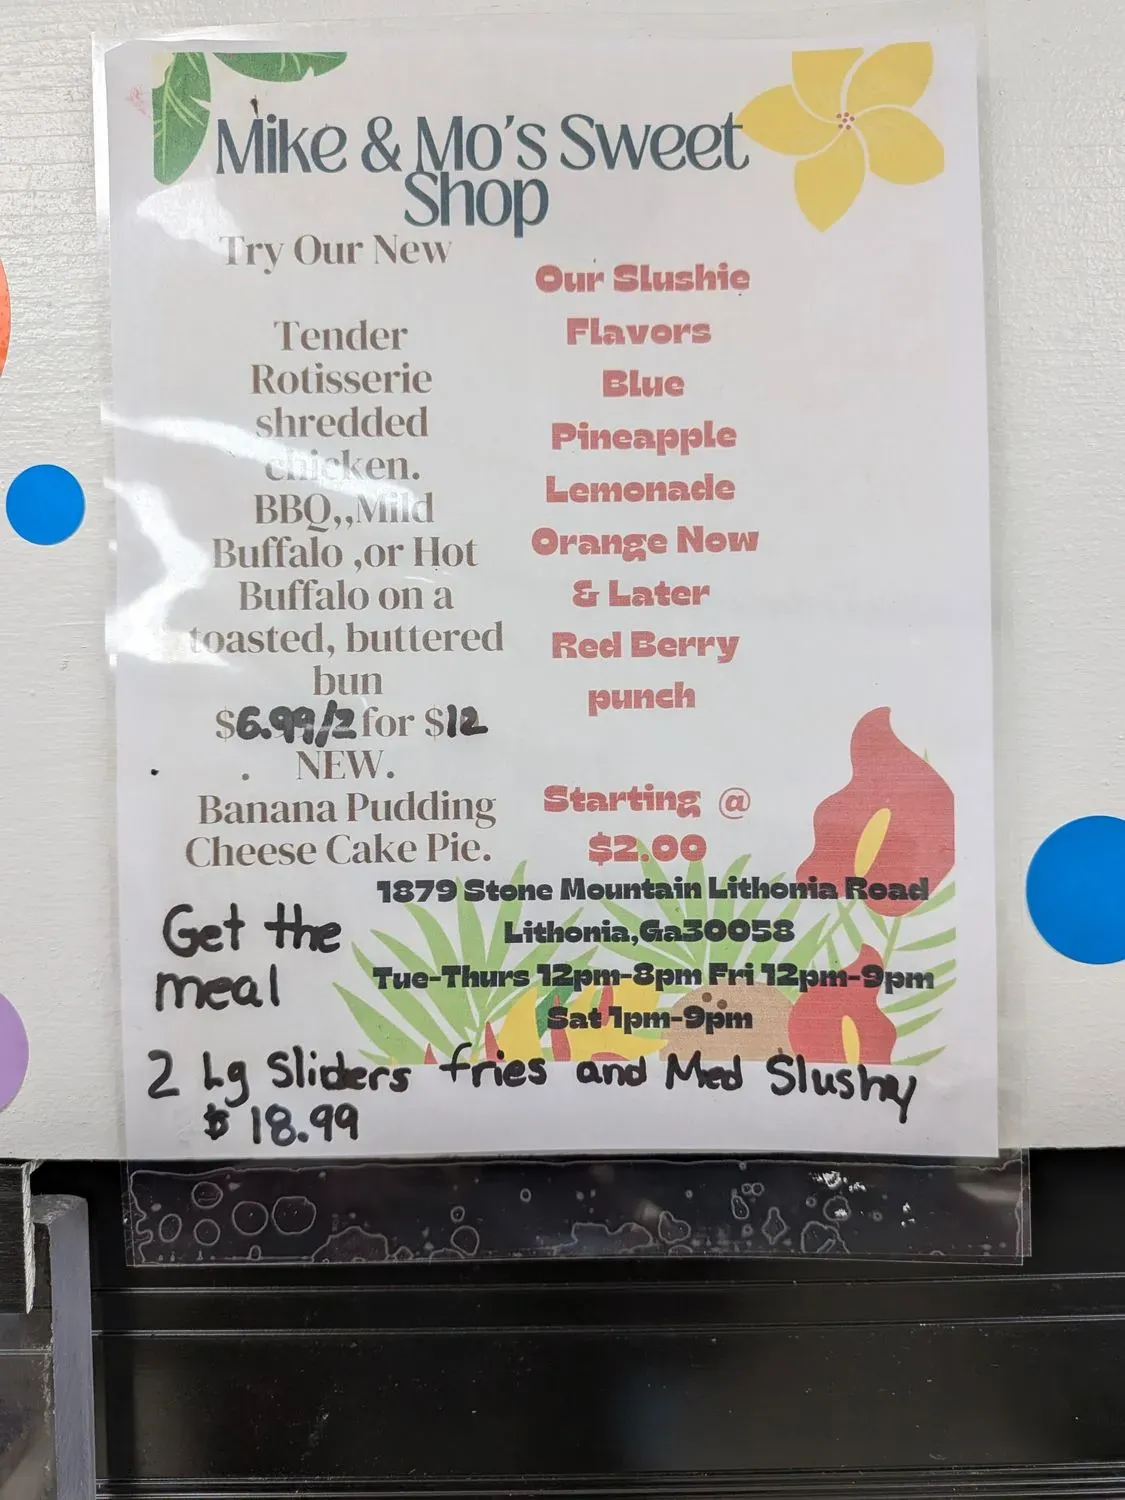 Mike & Mo's Sweet
Shop
Try Our New
Tender
Rotisserie
shredded
chicken.
BBQ,,Mild
Buffalo ,or Hot
Buffalo on a
toasted, buttered
bun
$6.99/2 for $12
. NEW.
Banana Pudding
Cheese Cake Pie.
Our Slushie
Flavors
Blue
Pineapple
Lemonade
Orange Now
& Later
Red Berry
punch
Starting @
$2.00
1879 Stone Mountain Lithonia Road
Lithonia,Ga30058
Tue-Thurs 12pm-8pm Fri 12pm-9pm
Sat 1pm-9pm
Get the
meal
2 Lg Sliders fries and Med Slushy
$18.99